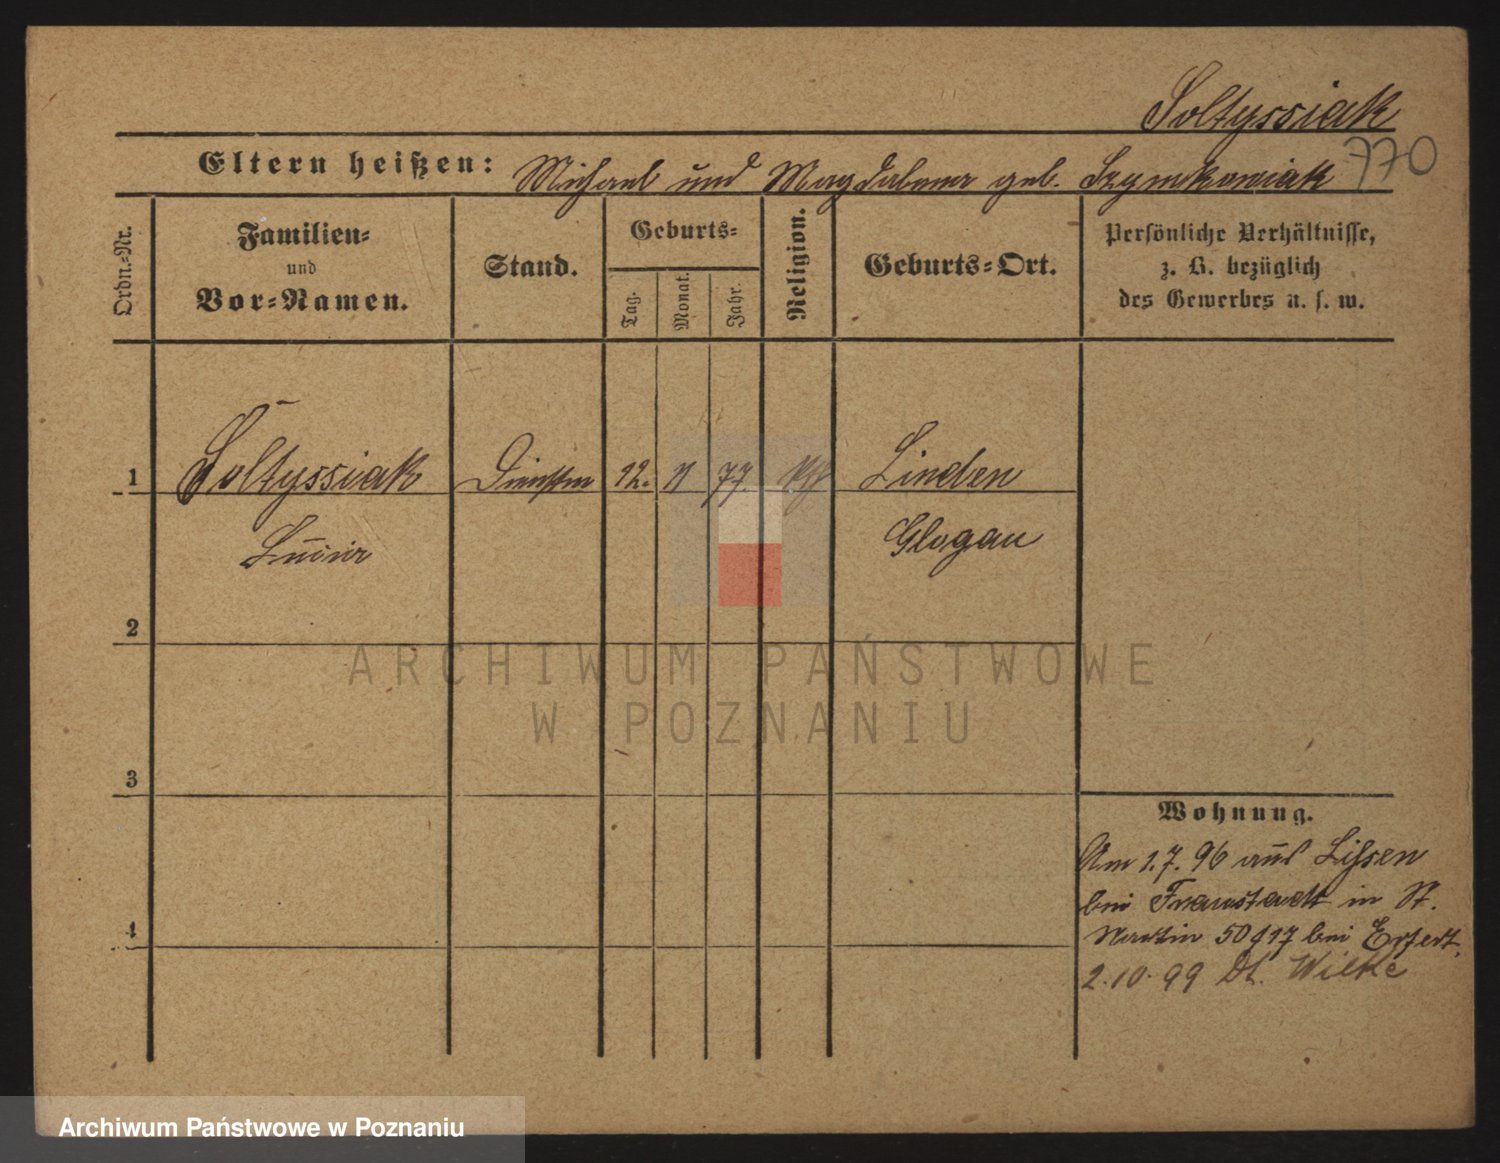 Soltyssiak
770
Eltern heißen: Michael und Magdalena geb. Szymkowiak
Ordn.-Nr.
Familien-
und
Vor-Namen.
Stand.
Geburts-
Tag.
Monat.
Jahr.
Religion.
Geburts-Ort.
Persönliche Verhältnisse,
z. B. bezüglich
des Gewerbes u. s. w.
1 Soltyssiak 12. 11 77 Linden
Glogau
2
3
4
Wohnung.
Am 1.7.96 aus Lissen
bei Fraustadt in St.
Martin 50/17 bei Erfert.
2.10.99 Wilke
ARCHIWUM PAŃSTWOWE
W POZNANIU
Archiwum Państwowe w Poznaniu